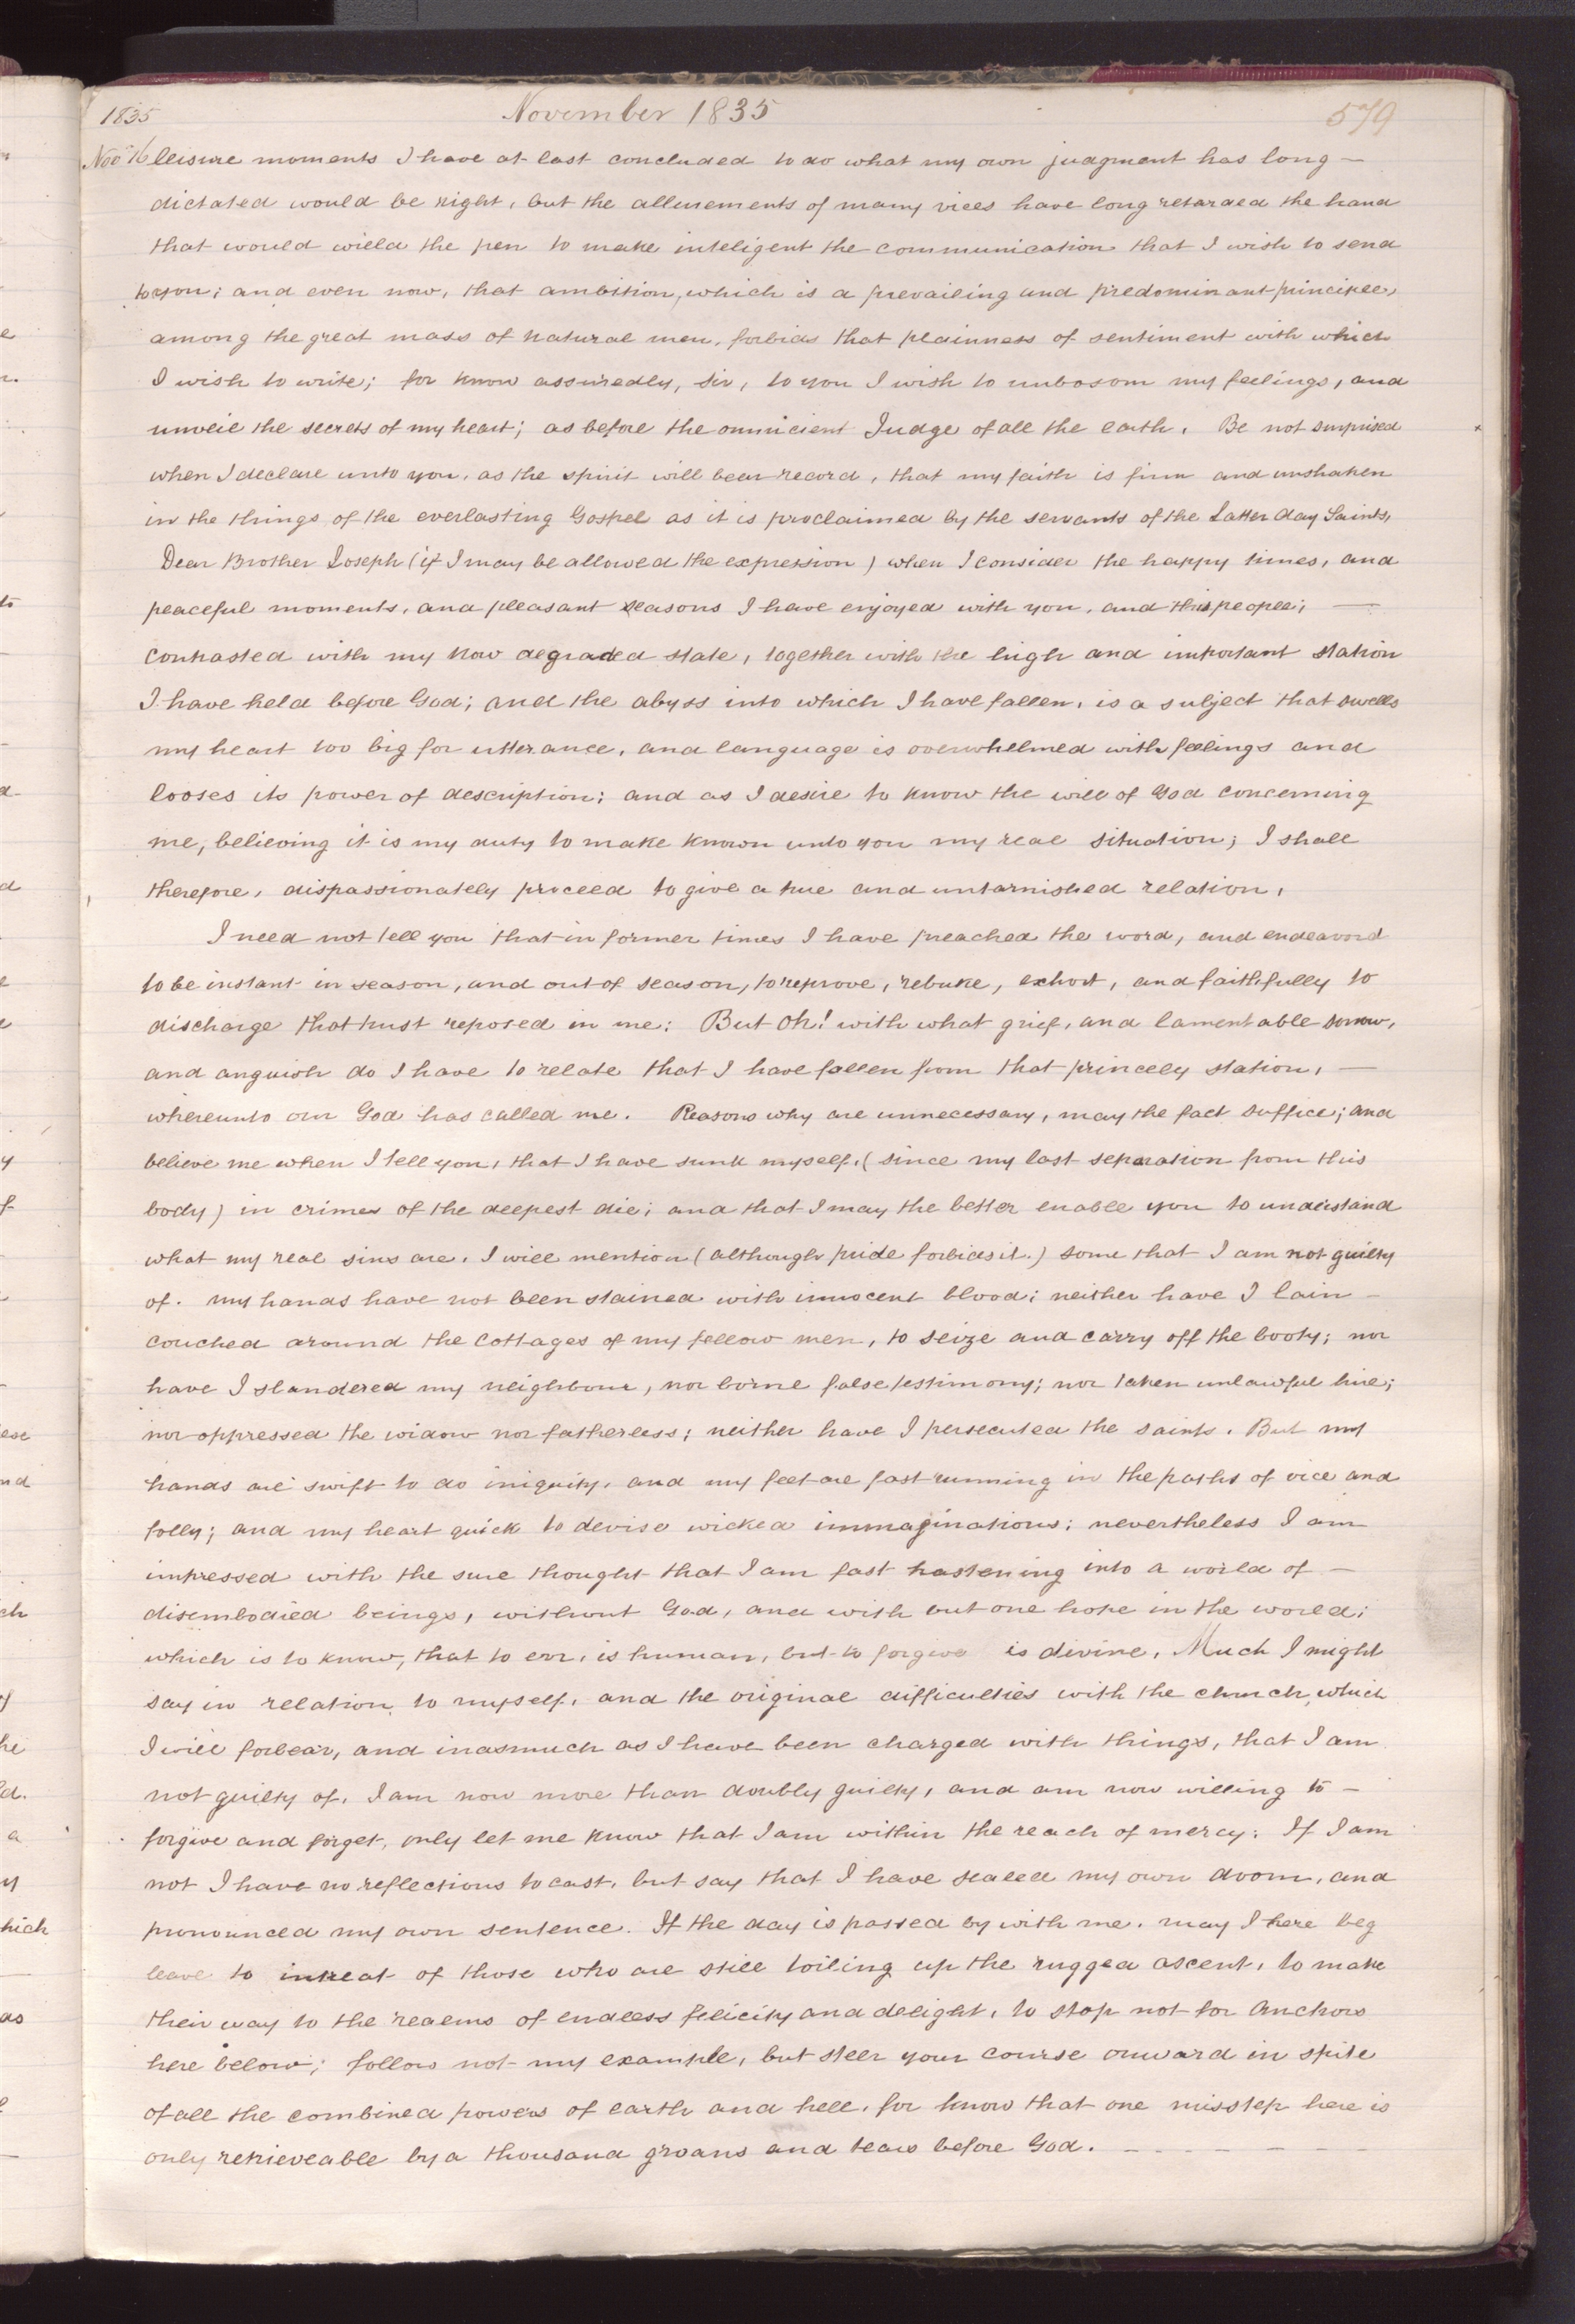 1835 November 1835 579
Nov 16 leisure moments I have at last concluded to do what my own judgment has long —
dictated would be right, but the allurements of many vices have long retarded the hand
that would wield the pen to make inteligent the communication that I wish to send
to you; and even now, that ambition, which is a prevailing and predominant principle,
among the great mass of natural men, forbids that plainness of sentiment with which
I wish to write; for know assuredly, sir, to you I wish to unbosom my feelings, and
unveil the secrets of my heart; as before the omnicient Judge of all the earth. Be not surprised
when I declare unto you, as the spirit will bear record, that my faith is firm and unshaken
in the things of the everlasting Gospel as it is proclaimed by the servants of the Latter day Saints,
Dear Brother Joseph (if I may be allowed the expression) when I consider the happy times, and
peaceful moments, and pleasant seasons I have enjoyed with you, and this people; —
contrasted with my now degraded state, together with the high and important station
I have held before God; and the abyss into which I have fallen, is a subject that swells
my heart too big for utterance, and language is overwhelmed with feelings and
looses its power of description; and as I desire to know the will of God concerning
me, believing it is my duty to make known unto you my real situation; I shall
therefore, dispassionately proceed to give a true and untarnished relation,
I need not tell you that in former times I have preached the word, and endeavord
to be instant in season, and out of season, to reprove, rebuke, exhort, and faithfully to
discharge that trust reposed in me: But Oh! with what grief, and lamentable sorrow,
and anguish do I have to relate that I have fallen from that princely station, —
whereunto our God has called me. Reasons why are unnecessary, may the fact suffice; and
believe me when I tell you, that I have sunk myself, (since my last separation from this
body) in crimes of the deepest die; and that I may the better enable you to understand
what my real sins are, I will mention (although pride forbids it.) some that I am not guilty
of. my hands have not been stained with innocent blood; neither have I lain —
couched around the cottages of my fellow men, to seize and carry off the booty; nor
have I slandered my neighbour, nor borne false testimony; nor taken unlawful hire;
nor oppressed the widow nor fatherless; neither have I persecuted the saints. But my
hands are swift to do iniquity, and my feet are fast running in the paths of vice and
folly; and my heart quick to devise wicked immaginations; nevertheless I am
impressed with the sure thought that I am fast hastening into a world of —
disembodied beings, without God, and with but one hope in the world;
which is to know, that to err, is human, but to forgive is divine, Much I might
say in relation to myself, and the original difficulties with the church, which
I will forbear, and inasmuch as I have been charged with things, that I am
not guilty of, I am now more than doubly guilty, and am now willing to —
forgive and forget, only let me know that I am within the reach of mercy: If I am
not I have no reflections to cast, but say that I have sealed my own doom, and
pronounced my own sentence. If the day is passed by with me, may I here beg
leave to intreat of those who are still toiling up the rugged ascent, to make
their way to the realms of endless felicity and delight, to stop not for anchors
here below; follow not my example, but steer your course onward in spite
of all the combined powers of earth and hell, for know that one misstep here is
only retrieveable by a thousand groans and tears before God. — — — — —